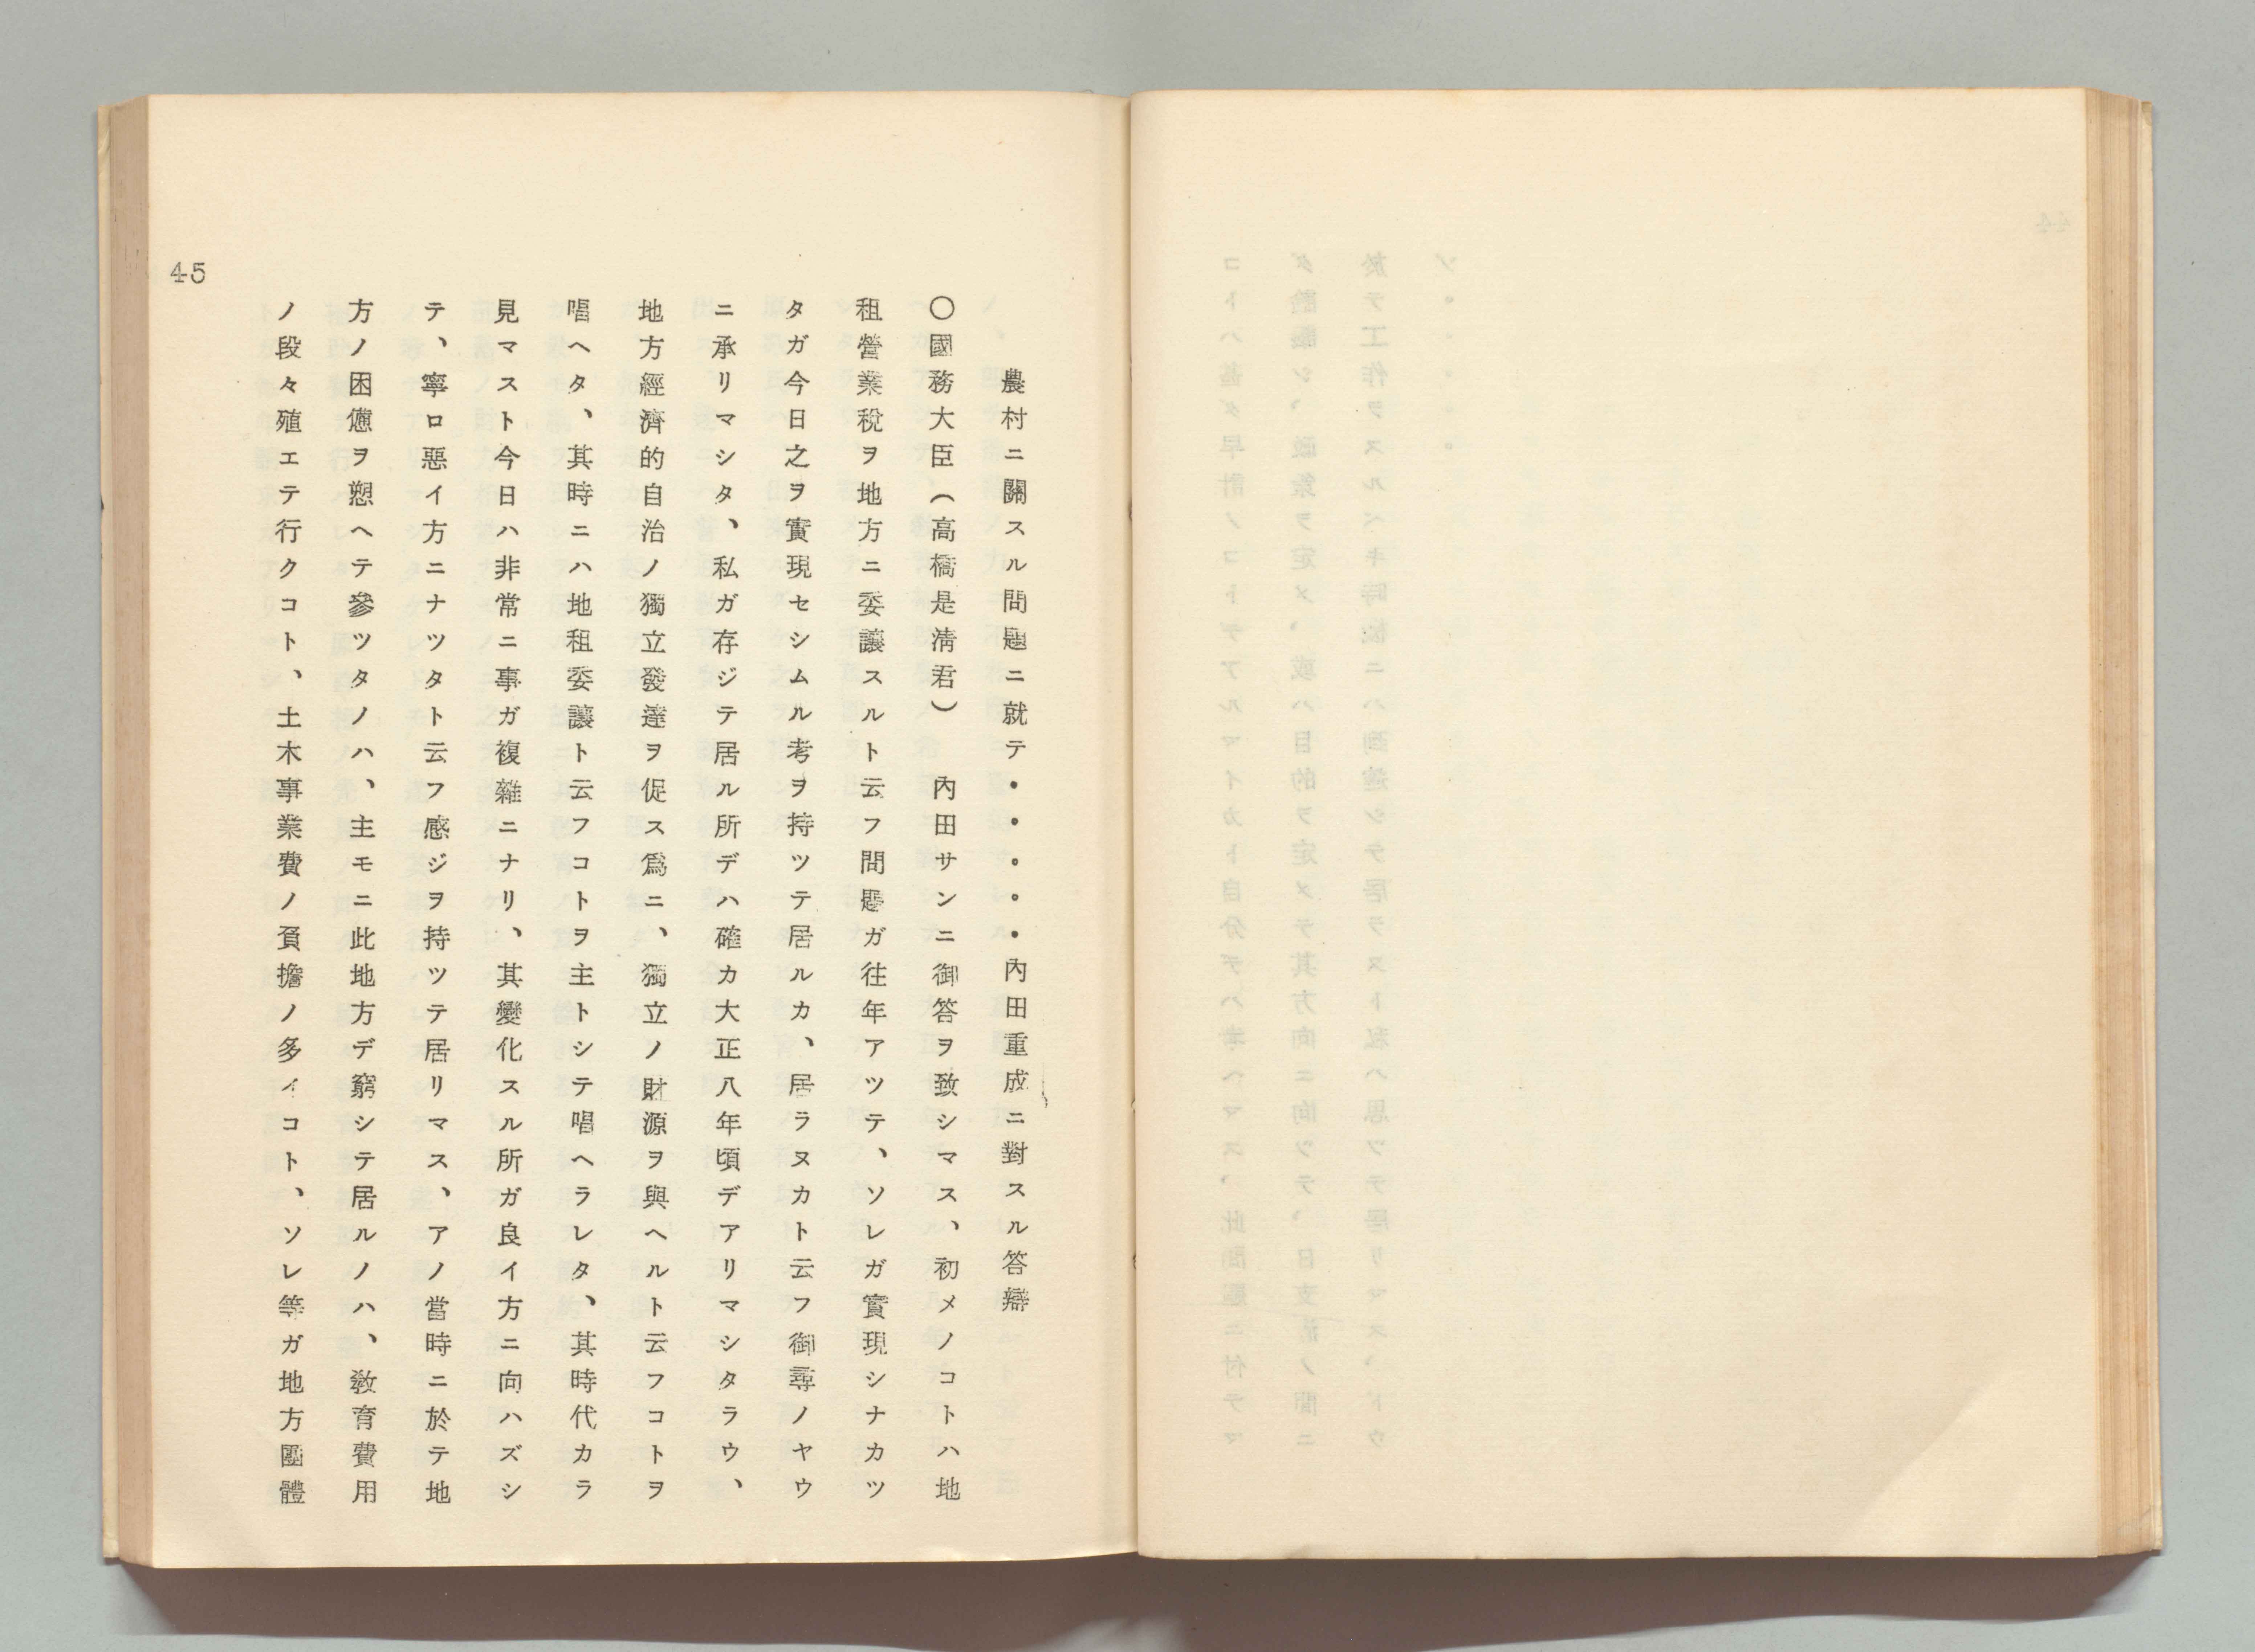 農村ニ關スル問題ニ就テ・・。。・內田重成ニ對スル答辯
〇國務大臣（高橋是淸君）　內田サンニ御答ヲ致シマス、初メノコトハ地
租營業稅ヲ地方ニ委讓スルト云フ問題ガ往年アツテ、ソレガ實現シナカツ
タガ今日之ヲ實現セシムル考ヲ持ツテ居ルカ、居ラヌカト云フ御尋ノヤウ
ニ承リマシタ、私ガ存ジテ居ル所デハ確カ大正八年頃デアリマシタラウ、
地方經濟的自治ノ獨立發達ヲ促ス爲ニ、獨立ノ財源ヲ與ヘルト云フコトヲ
唱ヘタ、其時ニハ地租委讓ト云フコトヲ主トシテ唱ヘラレタ、其時代カラ
見マスト今日ハ非常ニ事ガ複雜ニナリ、其變化スル所ガ良イ方ニ向ハズシ
テ、寧ロ惡イ方ニナツタト云フ感ジヲ持ツテ居リマス、アノ當時ニ於テ地
方ノ困憊ヲ愬ヘテ參ツタノハ、主モニ此地方デ窮シテ居ルノハ、敎育費用
ノ段々殖エテ行クコト、土木事業費ノ負擔ノ多イコト、ソレ等ガ地方團體
45